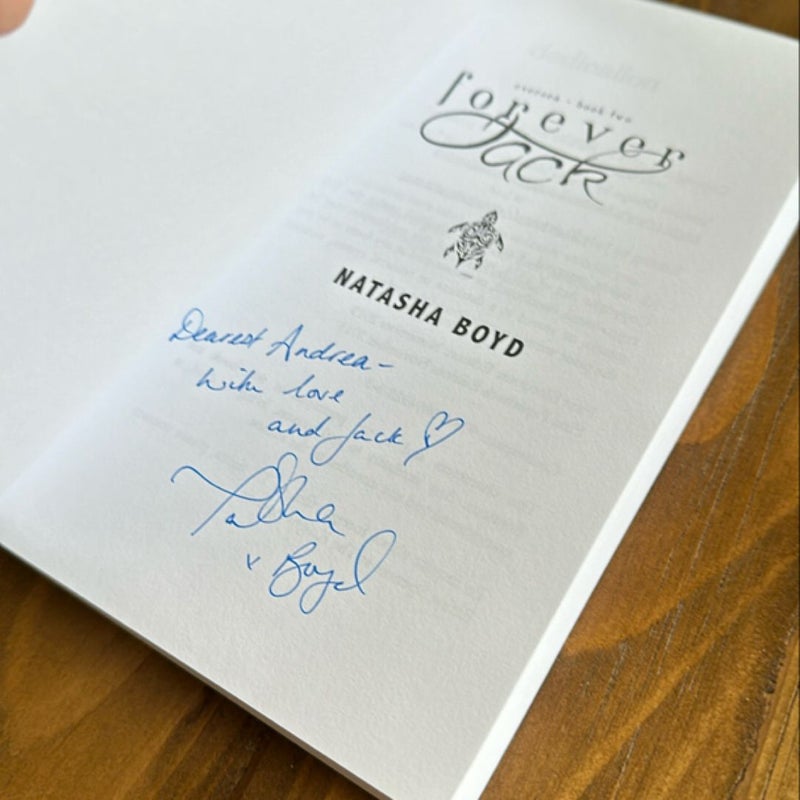 eversea - book two
forever
Jack
NATASHA BOYD
Dearest Andrea-
With love
and Jack ♡
Natasha
x Boyd